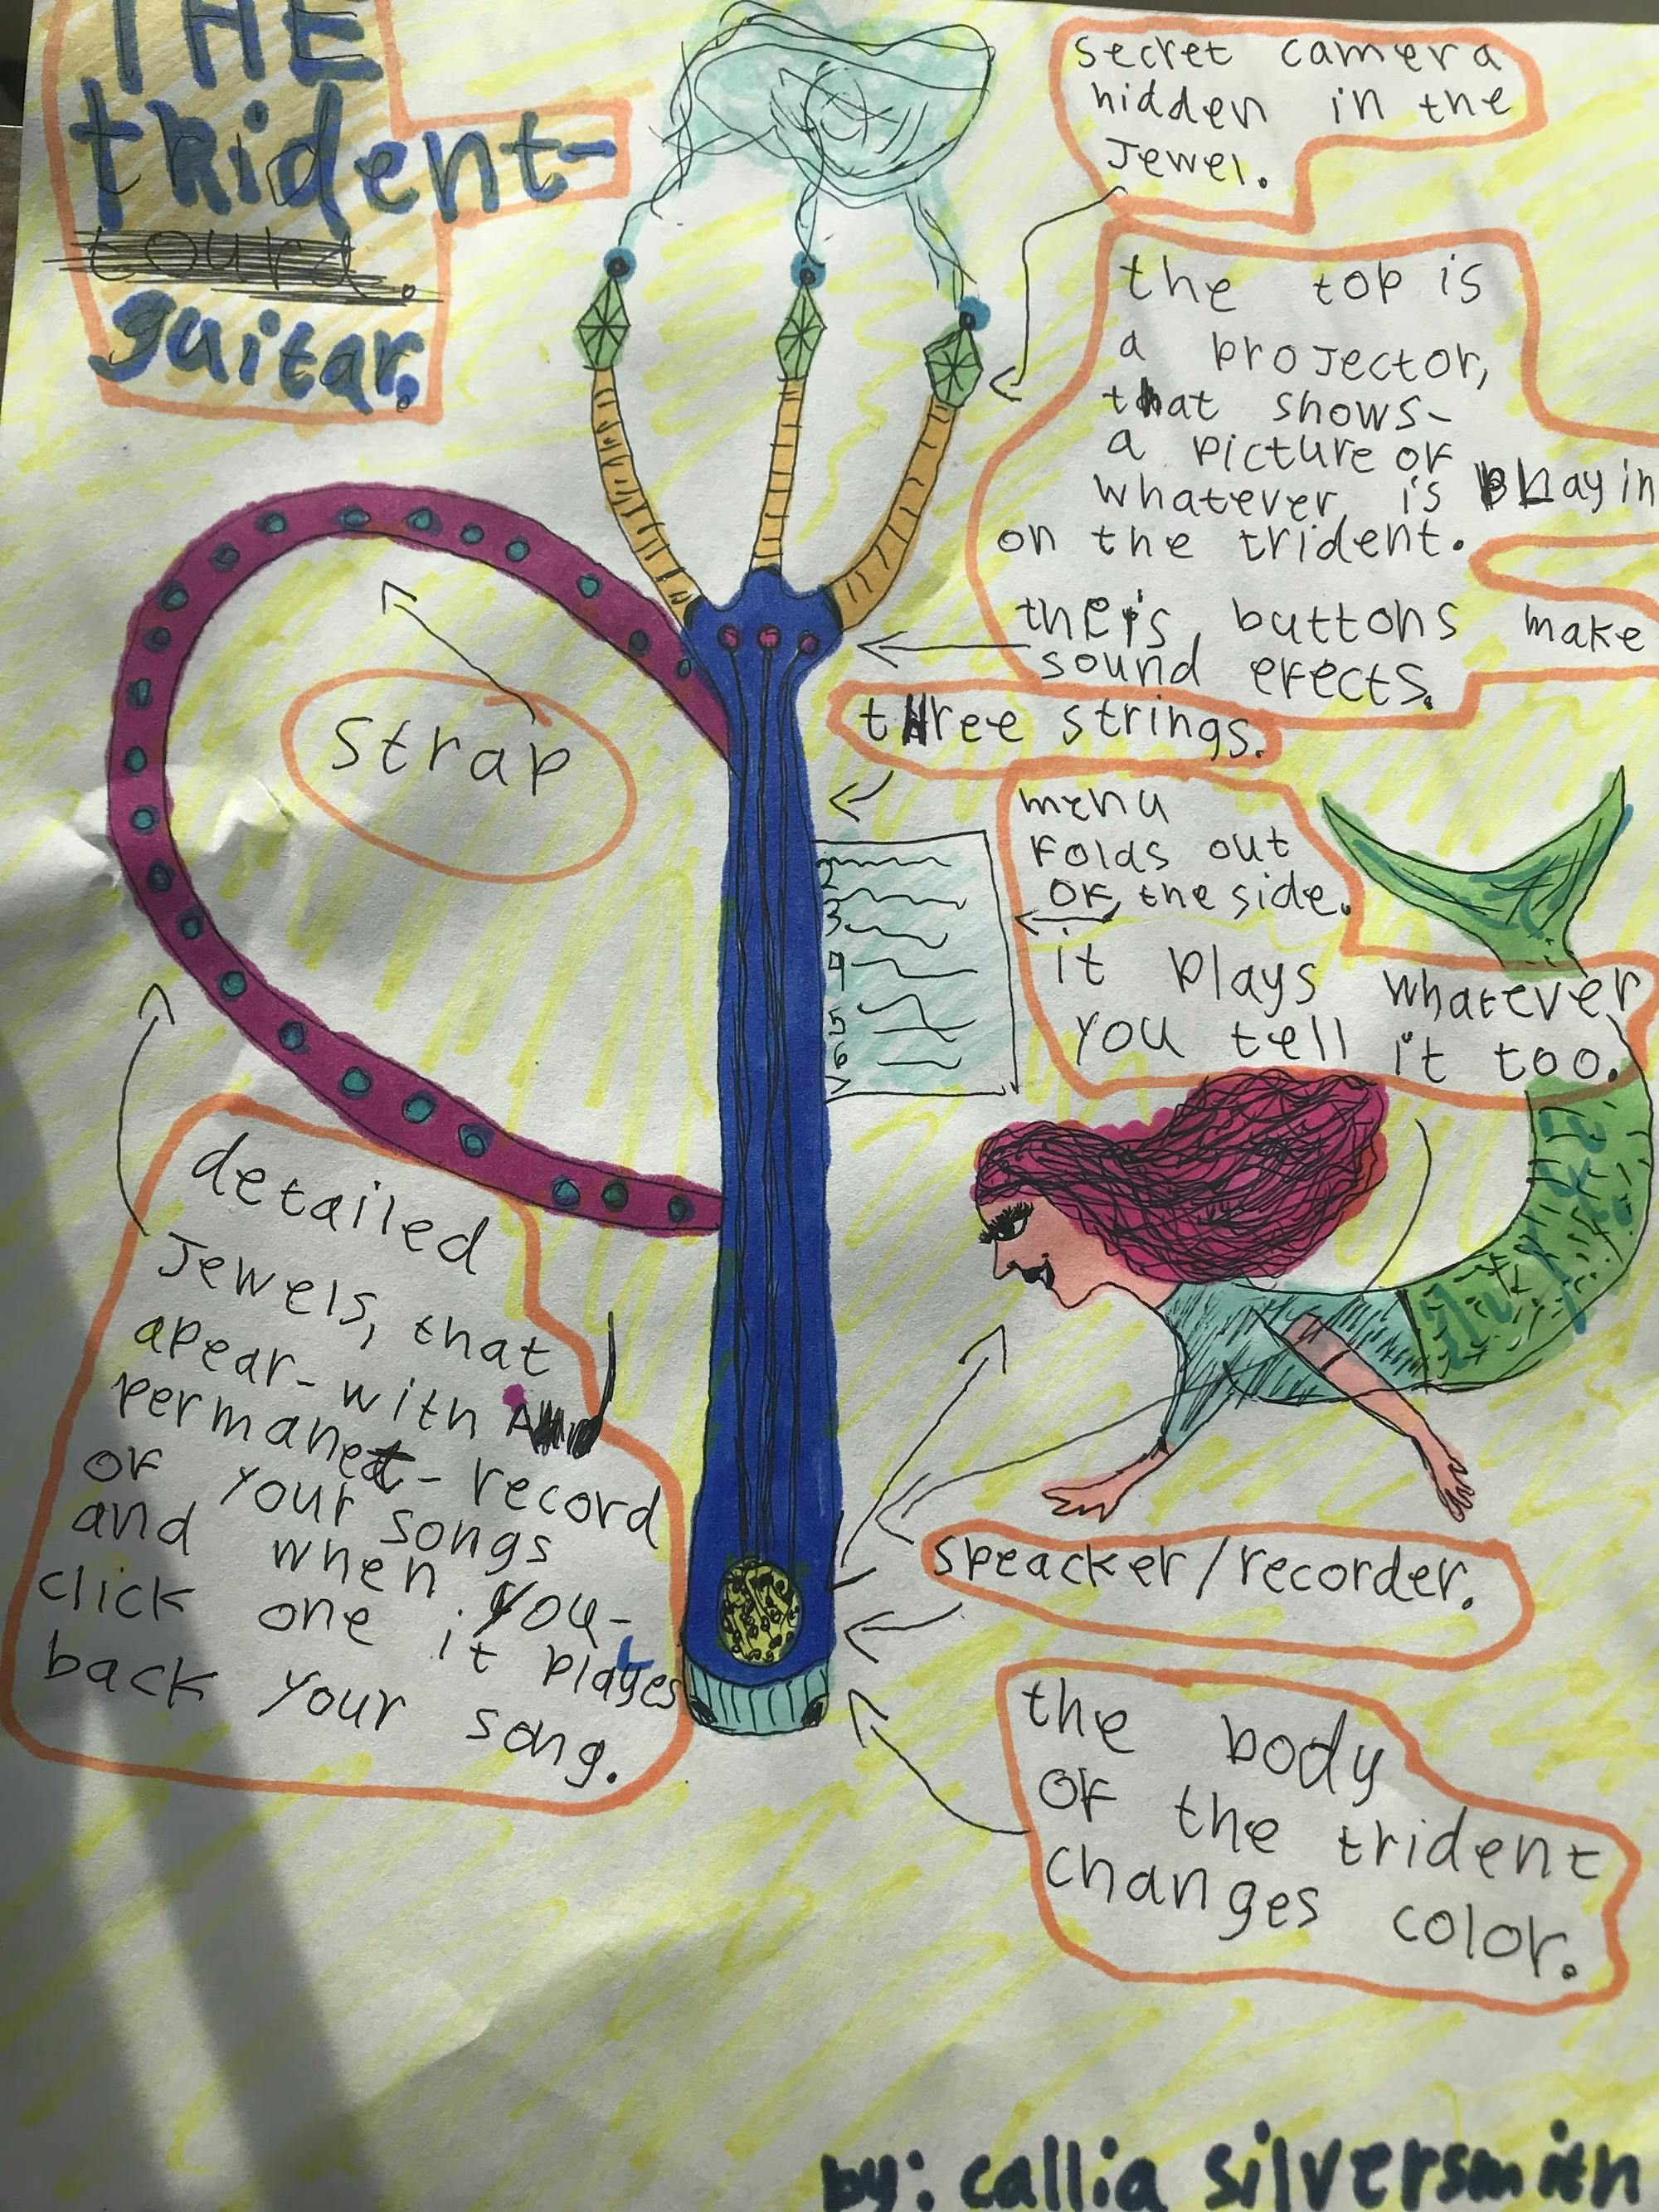 THE
trident-
guitar.
secret camera
hidden in the
Jewel.
the top is
a projector,
that shows-
a picture of
whatever is playin
on the trident.
theis buttons make
sound efects.
three strings.
strap
menu
folds out
of the side.
it plays whatever
you tell it too.
2
3
4
5
6
detailed
Jewels, that
apear-with
permanet-record
of your songs
and when you-
click one it playes
back your song.
speacker/recorder.
the body
of the trident
changes color.
by: callia silversmith